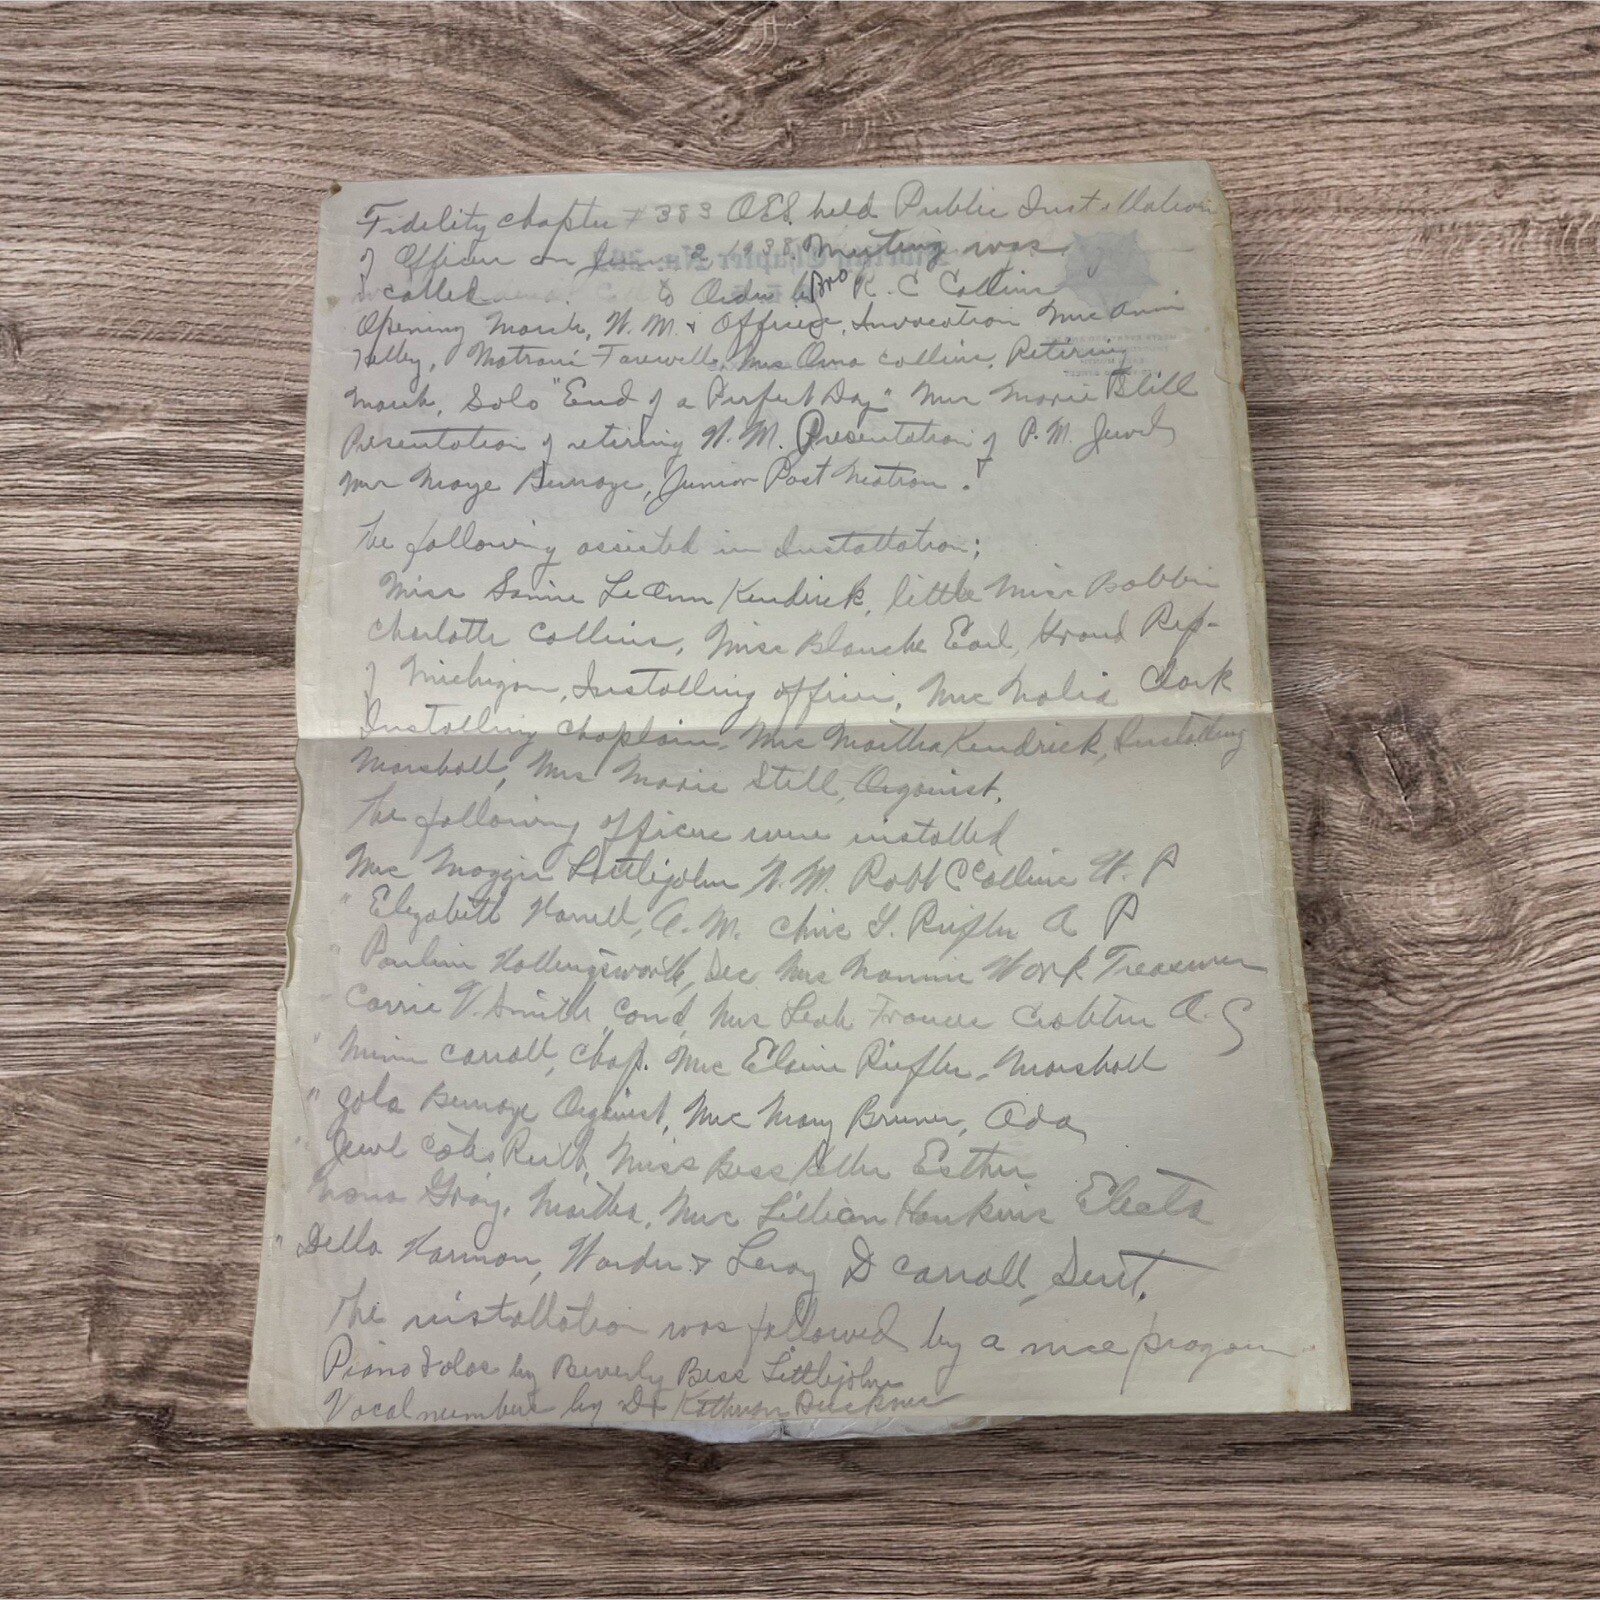 Fidelity chapter # 383 OES. held Public Installation
of Officers on June 2 1938. Meeting was
called to Order by Bro R. C Collins
Opening March, W. M. & Officers, Invocation Mrs Ann
Matrons Farewell, Mrs Oma Collins, Retiring
March, Solo "End of a Perfect Day" Mrs Marie Still
Presentation of retiring W. M. Presentation of P. M. Jewel,
Mrs Maye Burrage, Junior Past Matron.
The following assisted in Installation;
Miss Le Ann Kendrick, little Miss Bobbie
Charlotte Collins, Miss Blanche Earl, Grand Rep-
of Michigan, Installing officer, Mrs Clark
Installing Chaplain, Mrs Martha Kendrick, Installing
Marshall, Mrs Marie Still, Organist.
The following officers were installed
Mrs Maggie Littlejohn W. M. Robt C Collins W. P
" Elizabeth Harrell, A. M. Chris G. Riefler A P
" Pauline Hollingsworth, Sec Mrs Nannie Work Treasurer
Carrie V. Smith, Cond, Mrs Leah Frances A. C
" Carroll, Chap. Mrs Elaine Riefler, Marshall
" Zola Burrage Organist, Mrs Mary Bruner, Ada,
" Jewel Ruth, Miss Bess Esther
Nona Gray, Martha, Mrs Lillian Hankins Electa
" Della Harmon, Warder & Leroy D Carroll, Sent.
The installation was followed by a nice program
Piano Solos by Beverly Bess Littlejohn
Vocal numbers by Kathryn